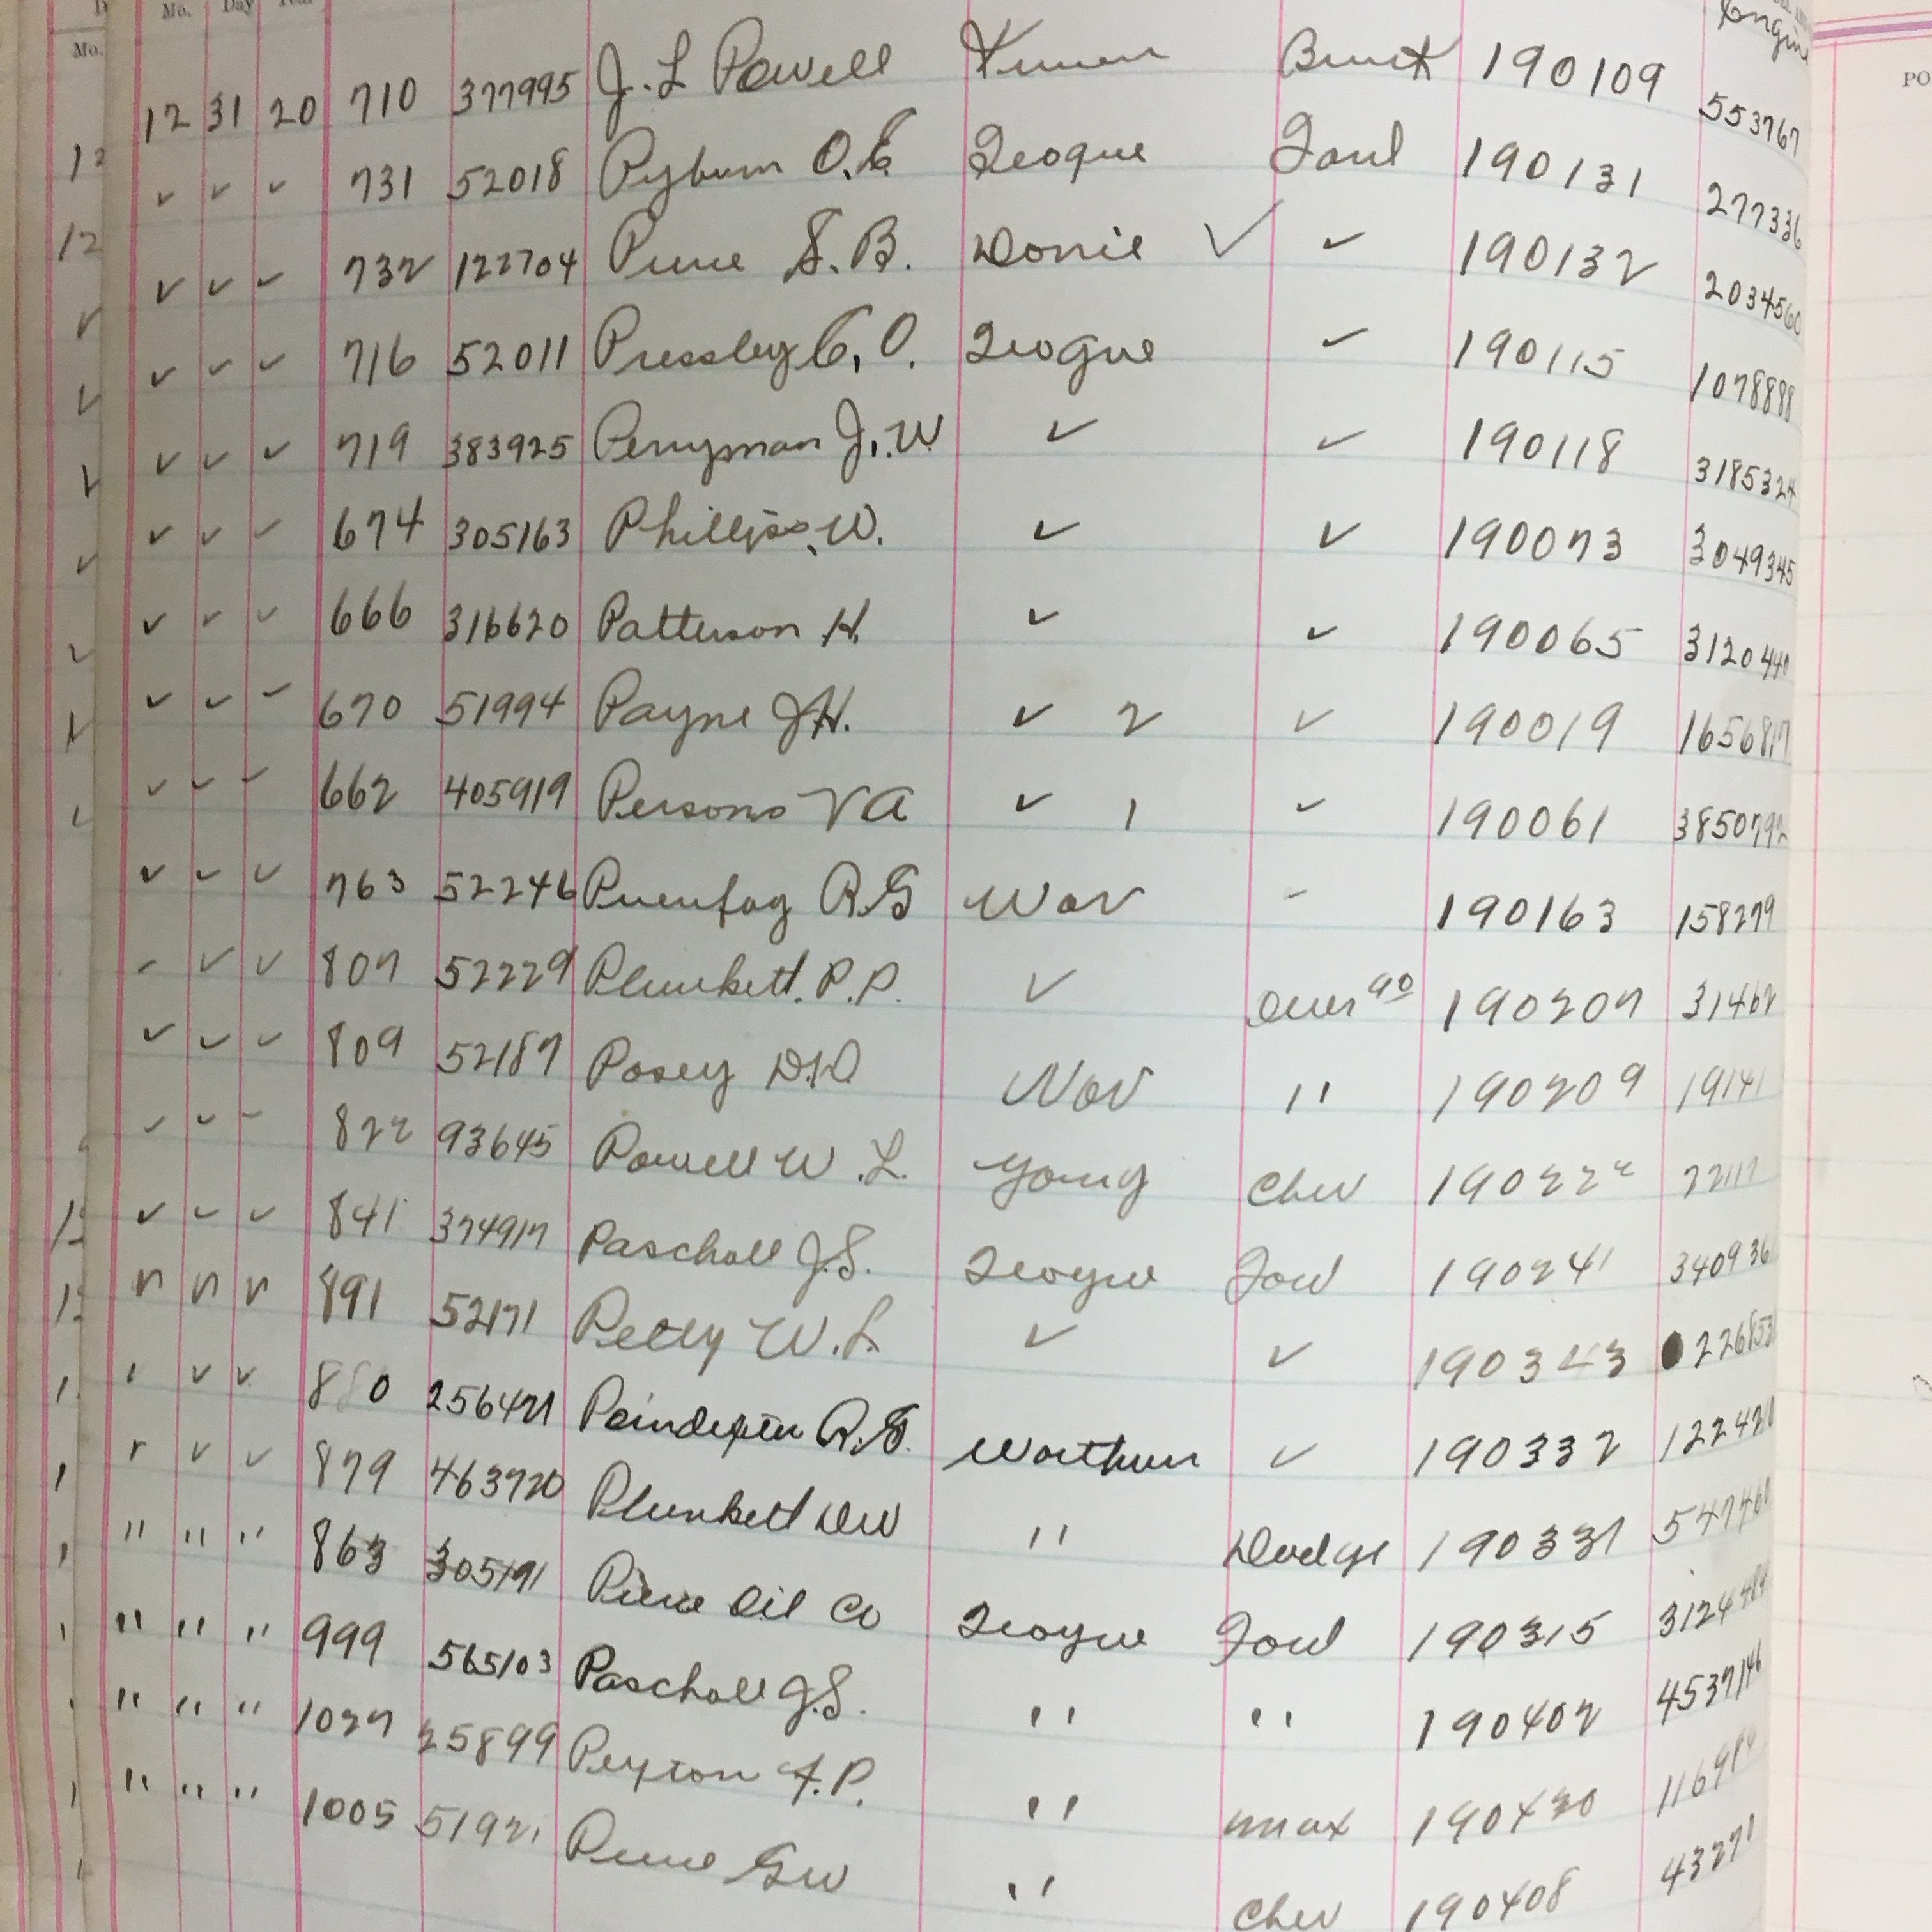 Mo. Day Year
Mo. Engine
12 31 20 710 377995 J. L Powell Buick 190109 553767
✓ ✓ ✓ 731 52018 Pyburn O.E Teague Ford 190131 277336
✓ ✓ ✓ 732 122704 S. B. Donie ✓ ✓ 190132 2034560
✓ ✓ ✓ 716 52011 Pressley C. O. Teague ✓ 190115 1078888
✓ ✓ ✓ 719 383925 Perryman J. W ✓ ✓ 190118 3185324
✓ ✓ ✓ 674 305163 Phillips, W. ✓ ✓ 190073 3049345
✓ ✓ ✓ 666 316620 Patterson H. ✓ ✓ 190065 3120440
✓ ✓ ✓ 670 51994 Payne J H. ✓ 2 ✓ 190019
✓ ✓ ✓ 662 405919 Persons V A ✓ 1 ✓ 190061 3850792
✓ ✓ ✓ 763 52246 R G Wor 190163 158279
✓ ✓ 807 52229 Plunkett. P. P. ✓ Over 90 190207 31462
✓ ✓ ✓ 809 52187 Posey D.D Wor " 190209 19141
✓ ✓ 822 93645 Powell W. L. Young Chev 190222
✓ ✓ ✓ 841 374917 Paschall J. S. Teague Ford 190241 340936
✓ ✓ ✓ 891 52171 Petty W. L. ✓ ✓ 190343
✓ ✓ 880 256421 Poindexter R. Wortham ✓ 190332
✓ ✓ 879 463720 Plunkett DW " Dodge 190331
" " " 863 305191 Pierce Oil Co Teague Ford 190315
" " " 999 565103 Paschall J.S. " " 190402
" " " 1027 25899 Peyton F. P. " max 190420
" " " 1005 51921 GW " Chev 190408 43271
PO